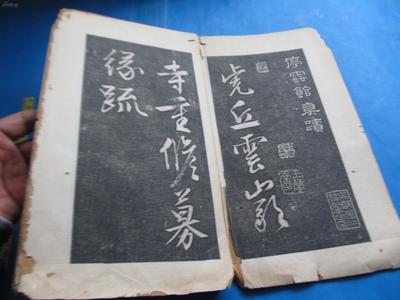 停雲館真蹟
虎丘雲巖
寺重脩募
緣疏